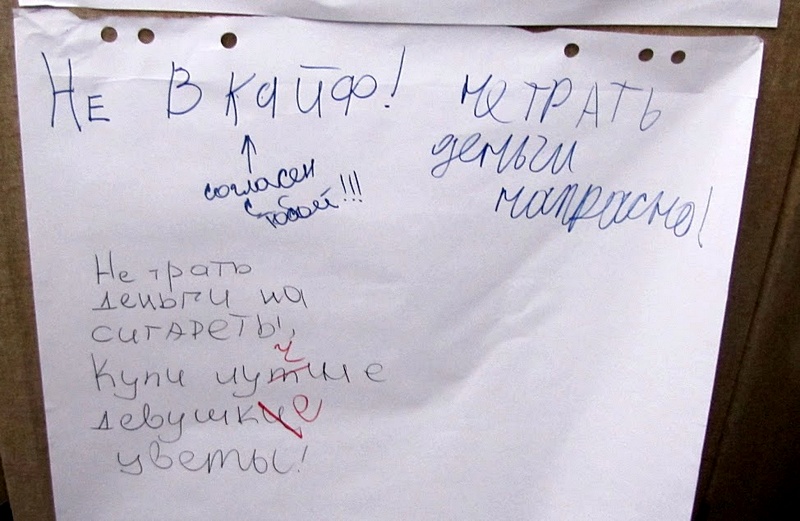 Не в кайф!
↑
согласен
с тобой!!!
не трать
деньги
напрасно!
Не трать
деньги на
сигареты,
Купи лутчше
девушкие
цветы!